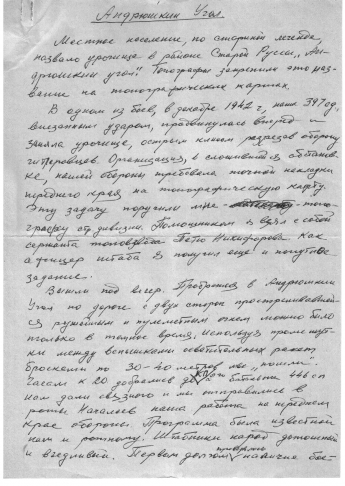 Андрюшкин Угол.
Местное население, по старинной легенде,
назвало урочище в районе Старой Руссы, „Ан-
дрюшкин угол". Топографы закрепили это наз-
вание на топографических картах.
В одном из боев, в декабре 1942 г, наша 397 сд,
внезапным ударом, продвинулась вперед и
заняла урочище, острым клином разрезав оборону
гитлеровцев. Организация, в сложившейся обстанов-
ке, нашей обороны требовала точной накладки
переднего края на топографическую карту.
Эту задачу поручили мне - топо-
графу от дивизии. Помощником я взял с собой
сержанта топовзвода Петю Никифорова. Как
офицер штаба я получил еще и попутное
задание.
Вышли под вечер. Пробраться в Андрюшкин
Угол по дороге с двух сторон простреливаемой
ружейным и пулеметным огнем можно было
только в темное время. Используя промежут-
ки между вспышками осветительных ракет,
бросками по 30-40 метров мы „пошли".
Часам к 20 добрались до КП батальона 446 сп
нам дали связного и мы отправились в
роты. Началась наша работа на переднем
крае обороны. Программа была известной
нам и ротному. Штабники народ дотошный
и въедливый. Первым долгом проверили наличие бое-